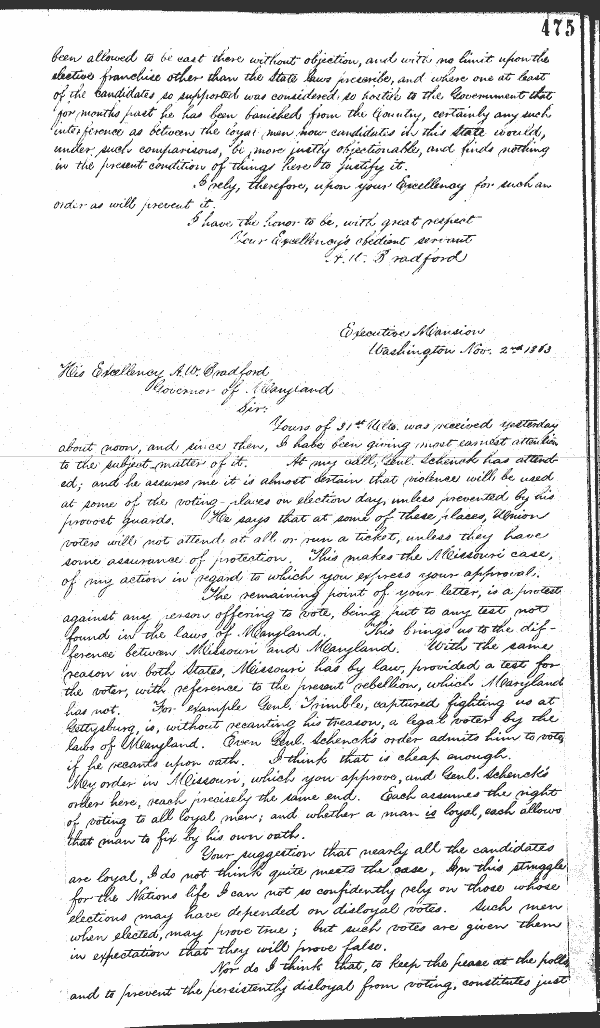 475
been allowed to be cast there without objection, and with no limit upon the
elective franchise other than the State laws prescribe, and where one at least
of the candidates so supported was considered so hostile to the Government that
for months past he has been banished from the Country, certainly any such
interference as between the loyal men now candidates in this State would,
under such comparisons, be more justly objectionable, and finds nothing
in the present condition of things here to justify it.
I rely, therefore, upon your Excellency for such an
order as will prevent it.
I have the honor to be, with great respect
Your Excellency's obedient servant
A. W. Bradford
Executive Mansion
Washington Nov. 2nd 1863
His Excellency A. W. Bradford
Governor of Maryland
Sir:
Yours of 31st Ulto. was received yesterday
about noon, and since then, I have been giving most earnest attention
to the subject-matter of it. At my call, Genl. Schenck has attend-
ed; and he assures me it is almost certain that violence will be used
at some of the voting-places on election day, unless prevented by his
provost guards. He says that at some of these places, Union
voters will not attend at all or run a ticket, unless they have
some assurance of protection. This makes the Missouri case,
of my action in regard to which you express your approval.
The remaining point of your letter, is a protest
against any person offering to vote, being put to any test not
found in the laws of Maryland. This brings us to the dif-
ference between Missouri and Maryland. With the same
reason in both States, Missouri has by law, provided a test for
the voter, with reference to the present rebellion, which Maryland
has not. For example Genl. Trimble, captured fighting us at
Gettysburg, is, without recanting his treason, a legal voter by the
laws of Maryland. Even Genl. Schenck's order admits him to vote,
if he recants upon oath. I think that is cheap enough.
My order in Missouri, which you approve, and Genl. Schenck's
order here, reach precisely the same end. Each assumes the right
of voting to all loyal men; and whether a man is loyal, each allows
that man to fix by his own oath.
Your suggestion that nearly all the candidates
are loyal, I do not think quite meets the case. In this struggle
for the Nations life I can not so confidently rely on those whose
elections may have depended on disloyal votes. Such men
when elected, may prove true; but such votes are given them
in expectation that they will prove false.
Nor do I think that to keep the peace at the polls,
and to prevent the persistently disloyal from voting, constitutes just